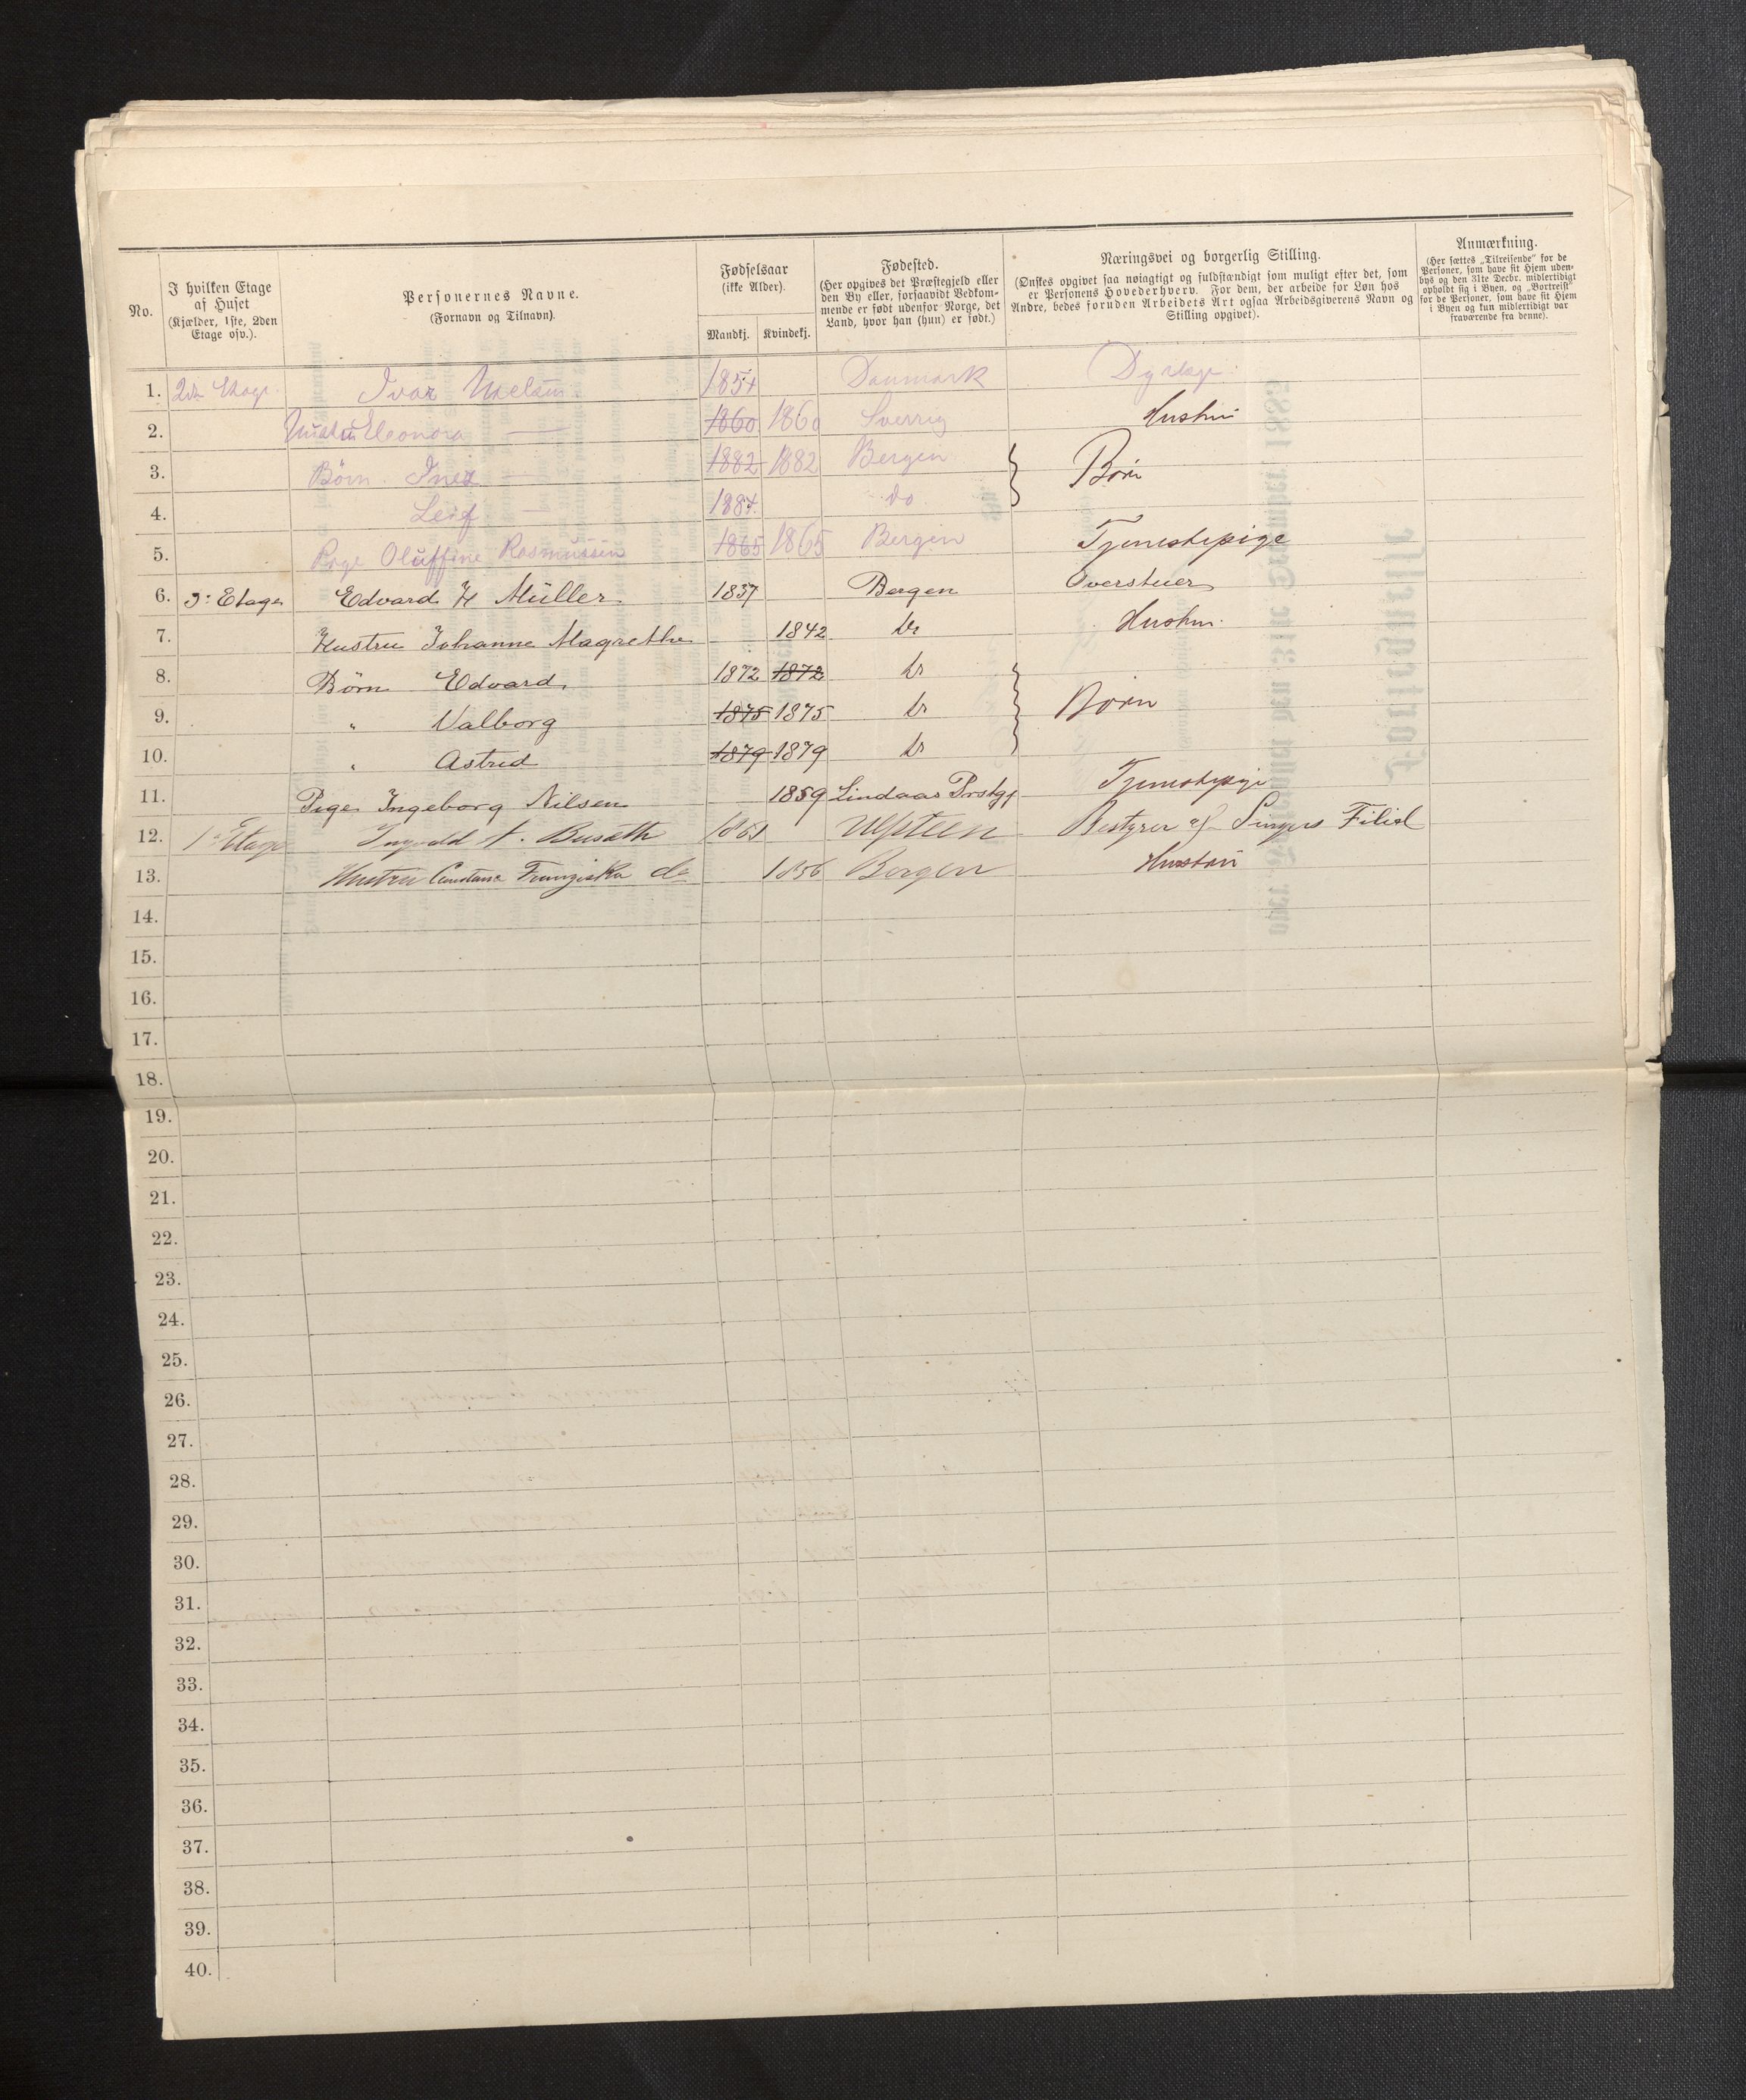 No.
I hvilken Etage af Huset (Kjælder, 1ste, 2den Etage osv.).
Personernes Navne. (Fornavn og Tilnavn).
Fødselsaar (ikke Alder). Mandkj. Kvindekj.
Fødested. (Her opgives det Præstegjeld eller den By eller, forsaavidt Vedkommende er født udenfor Norge, det Land, hvor han (hun) er født.)
Næringsvei og borgerlig Stilling. (Ønskes opgivet saa nøiagtigt og fuldstændigt som muligt efter det, som er Personens Hovederhverv. For dem, der arbeide for Løn hos Andre, bedes foruden Arbeidets Art ogsaa Arbeidsgiverens Navn og Stilling opgivet).
Anmærkning. (Her sættes „Tilreisende" for de Personer, som have sit Hjem udenbys og den 31te Decbr. midlertidigt opholdt sig i Byen, og „Bortreist" for de Personer, som have sit Hjem i Byen og kun midlertidigt var fraværende fra denne).
1. 2d Etage. Ivar Nielsen 1854 Danmark Dyrlæge
2. Hustru Eleonora — 1860 1860 Sverrig Hustru
3. Børn. Inez — 1882 1882 Bergen } Børn
4. Leif — 1884. do.
5. Pige Oluffine Rasmussen 1865 1865 Bergen Tjenestepige
6. 3: Etage Edvard H Müller 1837 Bergen Overstuer
7. Hustru Johanne Magrethe 1842 Do Hustru.
8. Børn Edvard. 1872 1872 Do
9. " Valborg 1875 1875 Do } Børn
10. " Astrid 1879 1879 Do
11. Pige Ingeborg Nilsen 1859 Lindaas Prstgj Tjenestepige
12. 1ste Etage Ingvald A. 1861 Ulsteen Bestyrer af Singers Filial
13. Hustru Constance Franziska do 1856 Bergen Hustru
14.
15.
16.
17.
18.
19.
20.
21.
22.
23.
24.
25.
26.
27.
28.
29.
30.
31.
32.
33.
34.
35.
36.
37.
38.
39.
40.